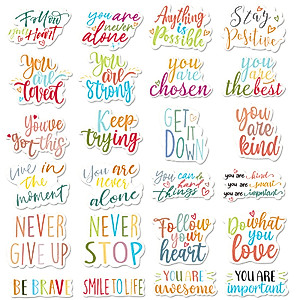 Follow
your Heart
you are
never
alone
Anything
is
Possible
Stay
Positive
you are
loved
you are
strong
you are
chosen
you are
the best
You've
got this
Keep
trying
GET
IT
DOWN
you are
kind
Live in
the
moment
You are
never
alone
you can
hard
things
you are kind
you are smart
you are important
NEVER
GIVE UP
NEVER
STOP
Follow
your
heart
Do what
you
Love
BE BRAVE
SMILE TO LIFE
YOU ARE
awesome
YOU ARE
important